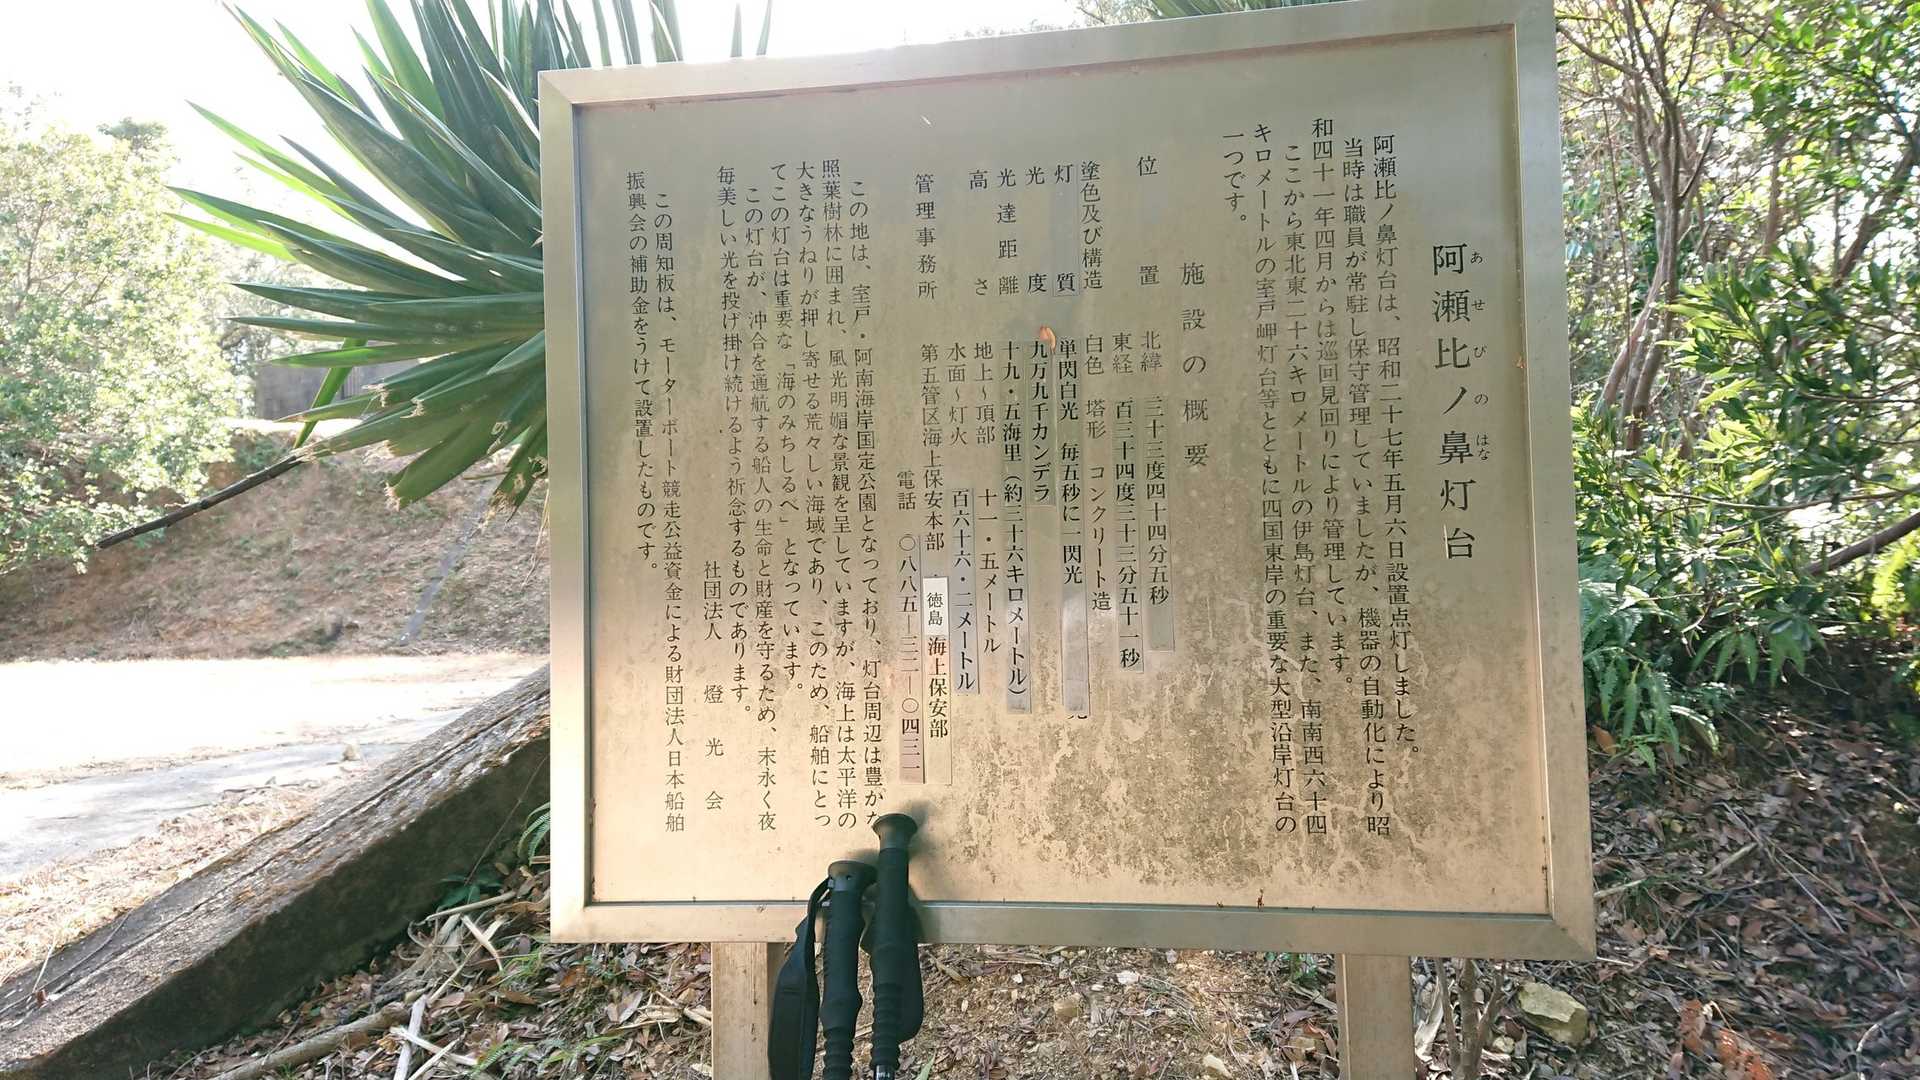 阿瀬比ノ鼻灯台
あせびのはな
阿瀬比ノ鼻灯台は、昭和二十七年五月六日設置点灯しました。
当時は職員が常駐し保守管理していましたが、機器の自動化により昭
和四十一年四月からは巡回見回りにより管理しています。
ここから東北東二十六キロメートルの伊島灯台、また、南南西六十四
キロメートルの室戸岬灯台等とともに四国東岸の重要な大型沿岸灯台の
一つです。
施設の概要
位置 北緯 三十三度四十四分五秒
東経 百三十四度三十三分五十一秒
塗色及び構造 白色 塔形 コンクリート造
灯質 単閃白光 毎五秒に一閃光
光度 九万九千カンデラ
光達距離 十九・五海里(約三十六キロメートル)
高さ 地上～頂部 十一・五メートル
水面～灯火 百六十六・二メートル
管理事務所 第五管区海上保安本部 徳島 海上保安部
電話 〇八八五―三二―〇四三一
この地は、室戸・阿南海岸国定公園となっており、灯台周辺は豊かな
照葉樹林に囲まれ、風光明媚な景観を呈していますが、海上は太平洋の
大きなうねりが押し寄せる荒々しい海域であり、このため、船舶にとっ
てこの灯台は重要な「海のみちしるべ」となっています。
この灯台が、沖合を通航する船人の生命と財産を守るため、末永く夜
毎美しい光を投げ掛け続けるよう祈念するものであります。
社団法人 燈光会
この周知板は、モーターボート競走公益資金による財団法人日本船舶
振興会の補助金をうけて設置したものです。